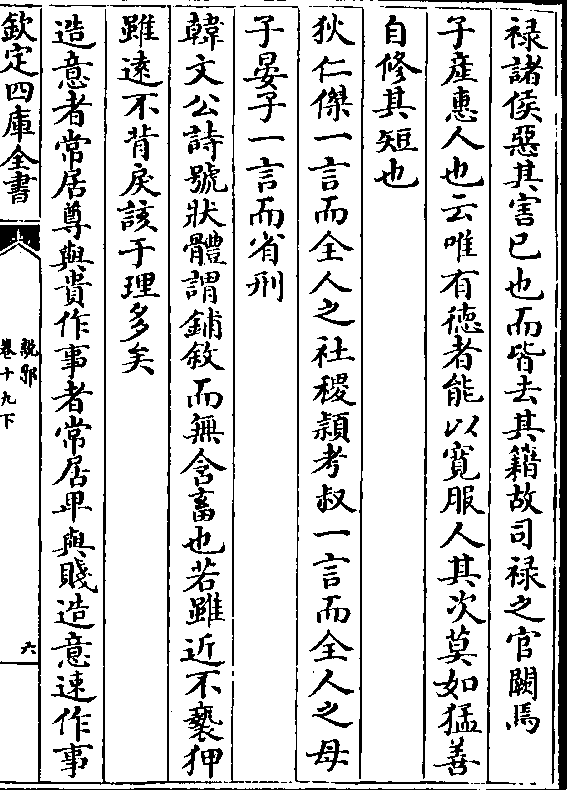 禄諸侯惡其害已也而皆去其籍故司禄之官闕焉
子産惠人也云唯有徳者能以寛服人其次莫如猛善
自修其短也
狄仁傑一言而全人之社稷頴考叔一言而全人之母
子晏子一言而省刑
韓文公詩號狀體謂鋪敘而無含畜也若雖近不䙝狎
雖逺不背戾該于理多矣
造意者常居尊與貴作事者常居卑與賤造意速作事
欽定四庫全書
說郛
卷十九下
六